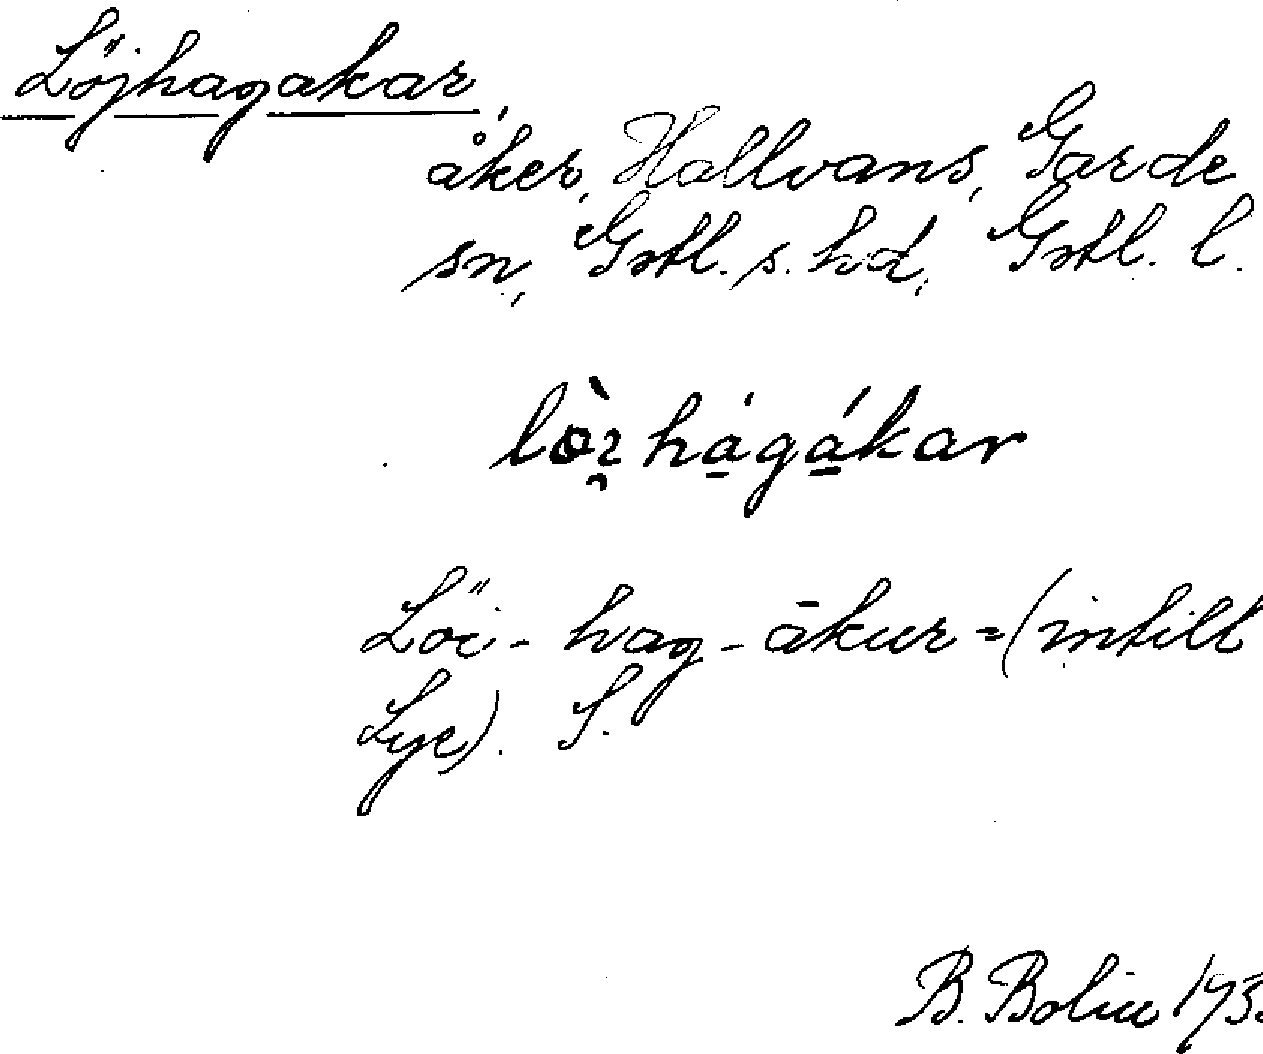 Löjhagakar,
åker, Hallvans, Garde
sn, Gotl. s. hd, Gotl. l.
Löi-hag-ākur = (intill
Lye). S.
B. Bolin